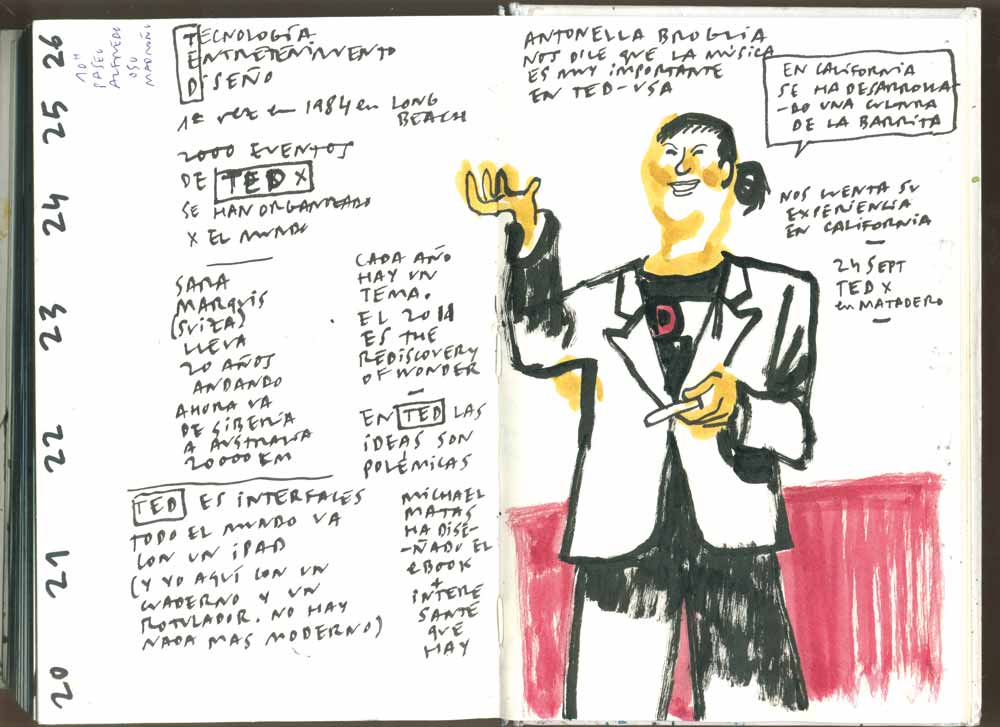 26
25
24
23
22
21
20
10H
PASEO
ALFREDO
OSO
MADROÑO
TECNOLOGÍA
ENTRETENIMIENTO
DISEÑO
1ª vez en 1984 en LONG
BEACH
2000 EVENTOS
DE TEDX
SE HAN ORGANIZADO
X EL MUNDO
SARA
MARQUIS
(SUIZA)
LLEVA
20 AÑOS
ANDANDO
AHORA VA
DE SIBERIA
A AUSTRALIA
20000 KM
CADA AÑO
HAY UN
TEMA.
EL 2011
ES THE
REDISCOVERY
OF WONDER
EN TED LAS
IDEAS SON
POLÉMICAS
TED ES INTERFACES
TODO EL MUNDO VA
CON UN iPAD
(Y YO AQUÍ CON UN
CUADERNO Y UN
ROTULADOR. NO HAY
NADA MAS MODERNO)
MICHAEL
MATAS
HA DISE-
-ÑADO EL
eBOOK
+
INTERE
SANTE
QUE
HAY
ANTONELLA BROGLIA
NOS DICE QUE LA MÚSICA
ES MUY IMPORTANTE
EN TED-USA
EN CALIFORNIA
SE HA DESARROLLA-
-DO UNA CULTURA
DE LA BARRITA
NOS CUENTA SU
EXPERIENCIA
EN CALIFORNIA
24 SEPT
TEDX
en MATADERO
D